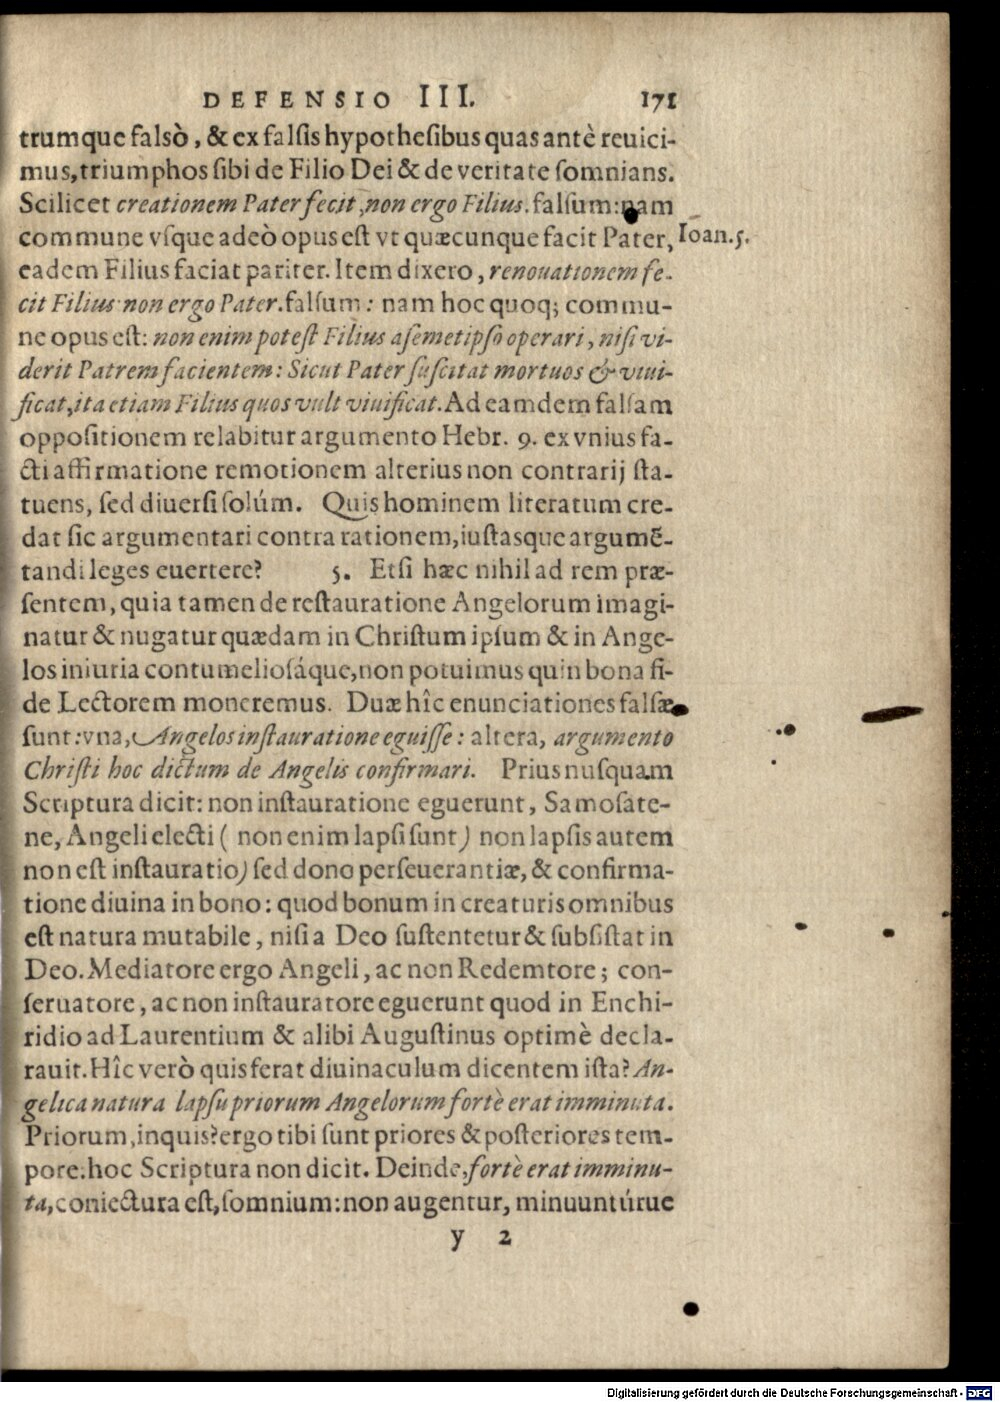 DEFENSIO III. 171
trumque falsò, & ex falsis hypothesibus quas antè reuici-
mus, triumphos sibi de Filio Dei & de veritate somnians.
Scilicet creationem Pater fecit, non ergo Filius. falsum: nam
commune vsque adeò opus est vt quæcunque facit Pater,
Ioan. 5.
eadem Filius faciat pariter. Item dixero, renouationem fe-
cit Filius non ergo Pater. falsum: nam hoc quoq; commu-
ne opus est: non enim potest Filius a semetipso operari, nisi vi-
derit Patrem facientem: Sicut Pater suscitat mortuos & viui-
ficat, ita etiam Filius quos vult viuificat. Ad eamdem falsam
oppositionem relabitur argumento Hebr. 9. ex vnius fa-
cti affirmatione remotionem alterius non contrarij sta-
tuens, sed diuersi solúm. Quis hominem literatum cre-
dat sic argumentari contra rationem, iustasque argumē-
tandi leges euertere? 5. Etsi hæc nihil ad rem præ-
sentem, quia tamen de restauratione Angelorum imagi-
natur & nugatur quædam in Christum ipsum & in Ange-
los iniuria contumeliosáque, non potuimus quin bona fi-
de Lectorem moneremus. Duæ hîc enunciationes falsæ
sunt: vna, Angelos instauratione eguisse: altera, argumento
Christi hoc dictum de Angelis confirmari. Prius nusquam
Scriptura dicit: non instauratione eguerunt, Samosate-
ne, Angeli electi ( non enim lapsi sunt) non lapsis autem
non est instauratio) sed dono perseuerantiæ, & confirma-
tione diuina in bono: quod bonum in creaturis omnibus
est natura mutabile, nisi a Deo sustentetur & subsistat in
Deo. Mediatore ergo Angeli, ac non Redemtore; con-
seruatore, ac non instauratore eguerunt quod in Enchi-
ridio ad Laurentium & alibi Augustinus optimè decla-
rauit. Hîc verò quis ferat diuinaculum dicentem ista? An-
gelica natura lapsu priorum Angelorum fortè erat imminuta.
Priorum, inquis? ergo tibi sunt priores & posteriores tem-
pore: hoc Scriptura non dicit. Deinde, fortè erat imminu-
ta, coniectura est, somnium: non augentur, minuuntúrue
y 2
Digitalisierung gefördert durch die Deutsche Forschungsgemeinschaft - DFG